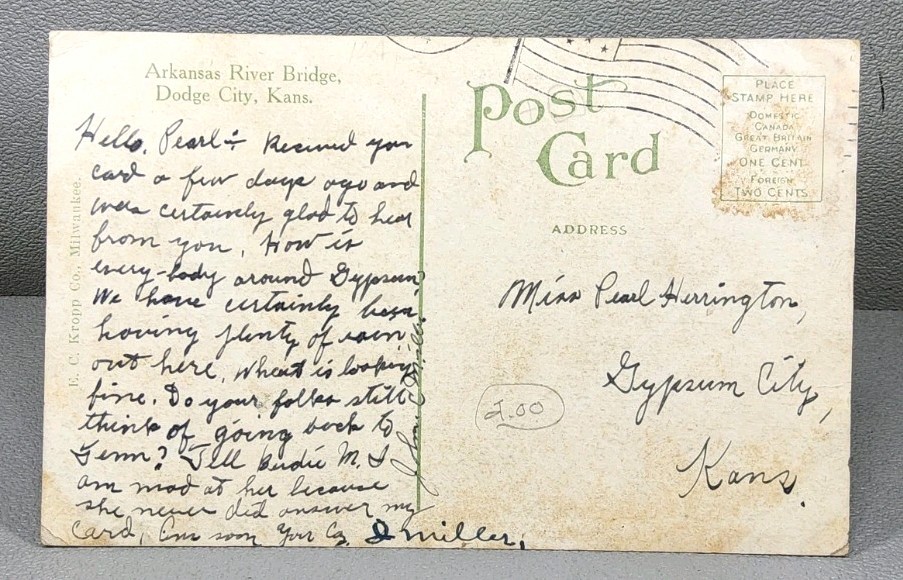 Arkansas River Bridge,
Dodge City, Kans.
E. C. Kropp Co., Milwaukee.
Hello, Pearl:- Received your
card a few days ago and
was certainly glad to hear
from you. How is
every-body around Gypsum?
We have certainly been
having plenty of rain
out here. Wheat is looking
fine. Do your folks still
think of going back to
Tenn? Tell Birdie M. I
am mad at her because
she never did answer my
card, Ans soon Your
J Miller,
John Miller
Post
Card
PLACE
STAMP HERE
DOMESTIC
CANADA
GREAT BRITAIN
GERMANY
ONE CENT
FOREIGN
TWO CENTS
ADDRESS
Miss Pearl Herrington,
Gypsum City,
Kans.
2.00